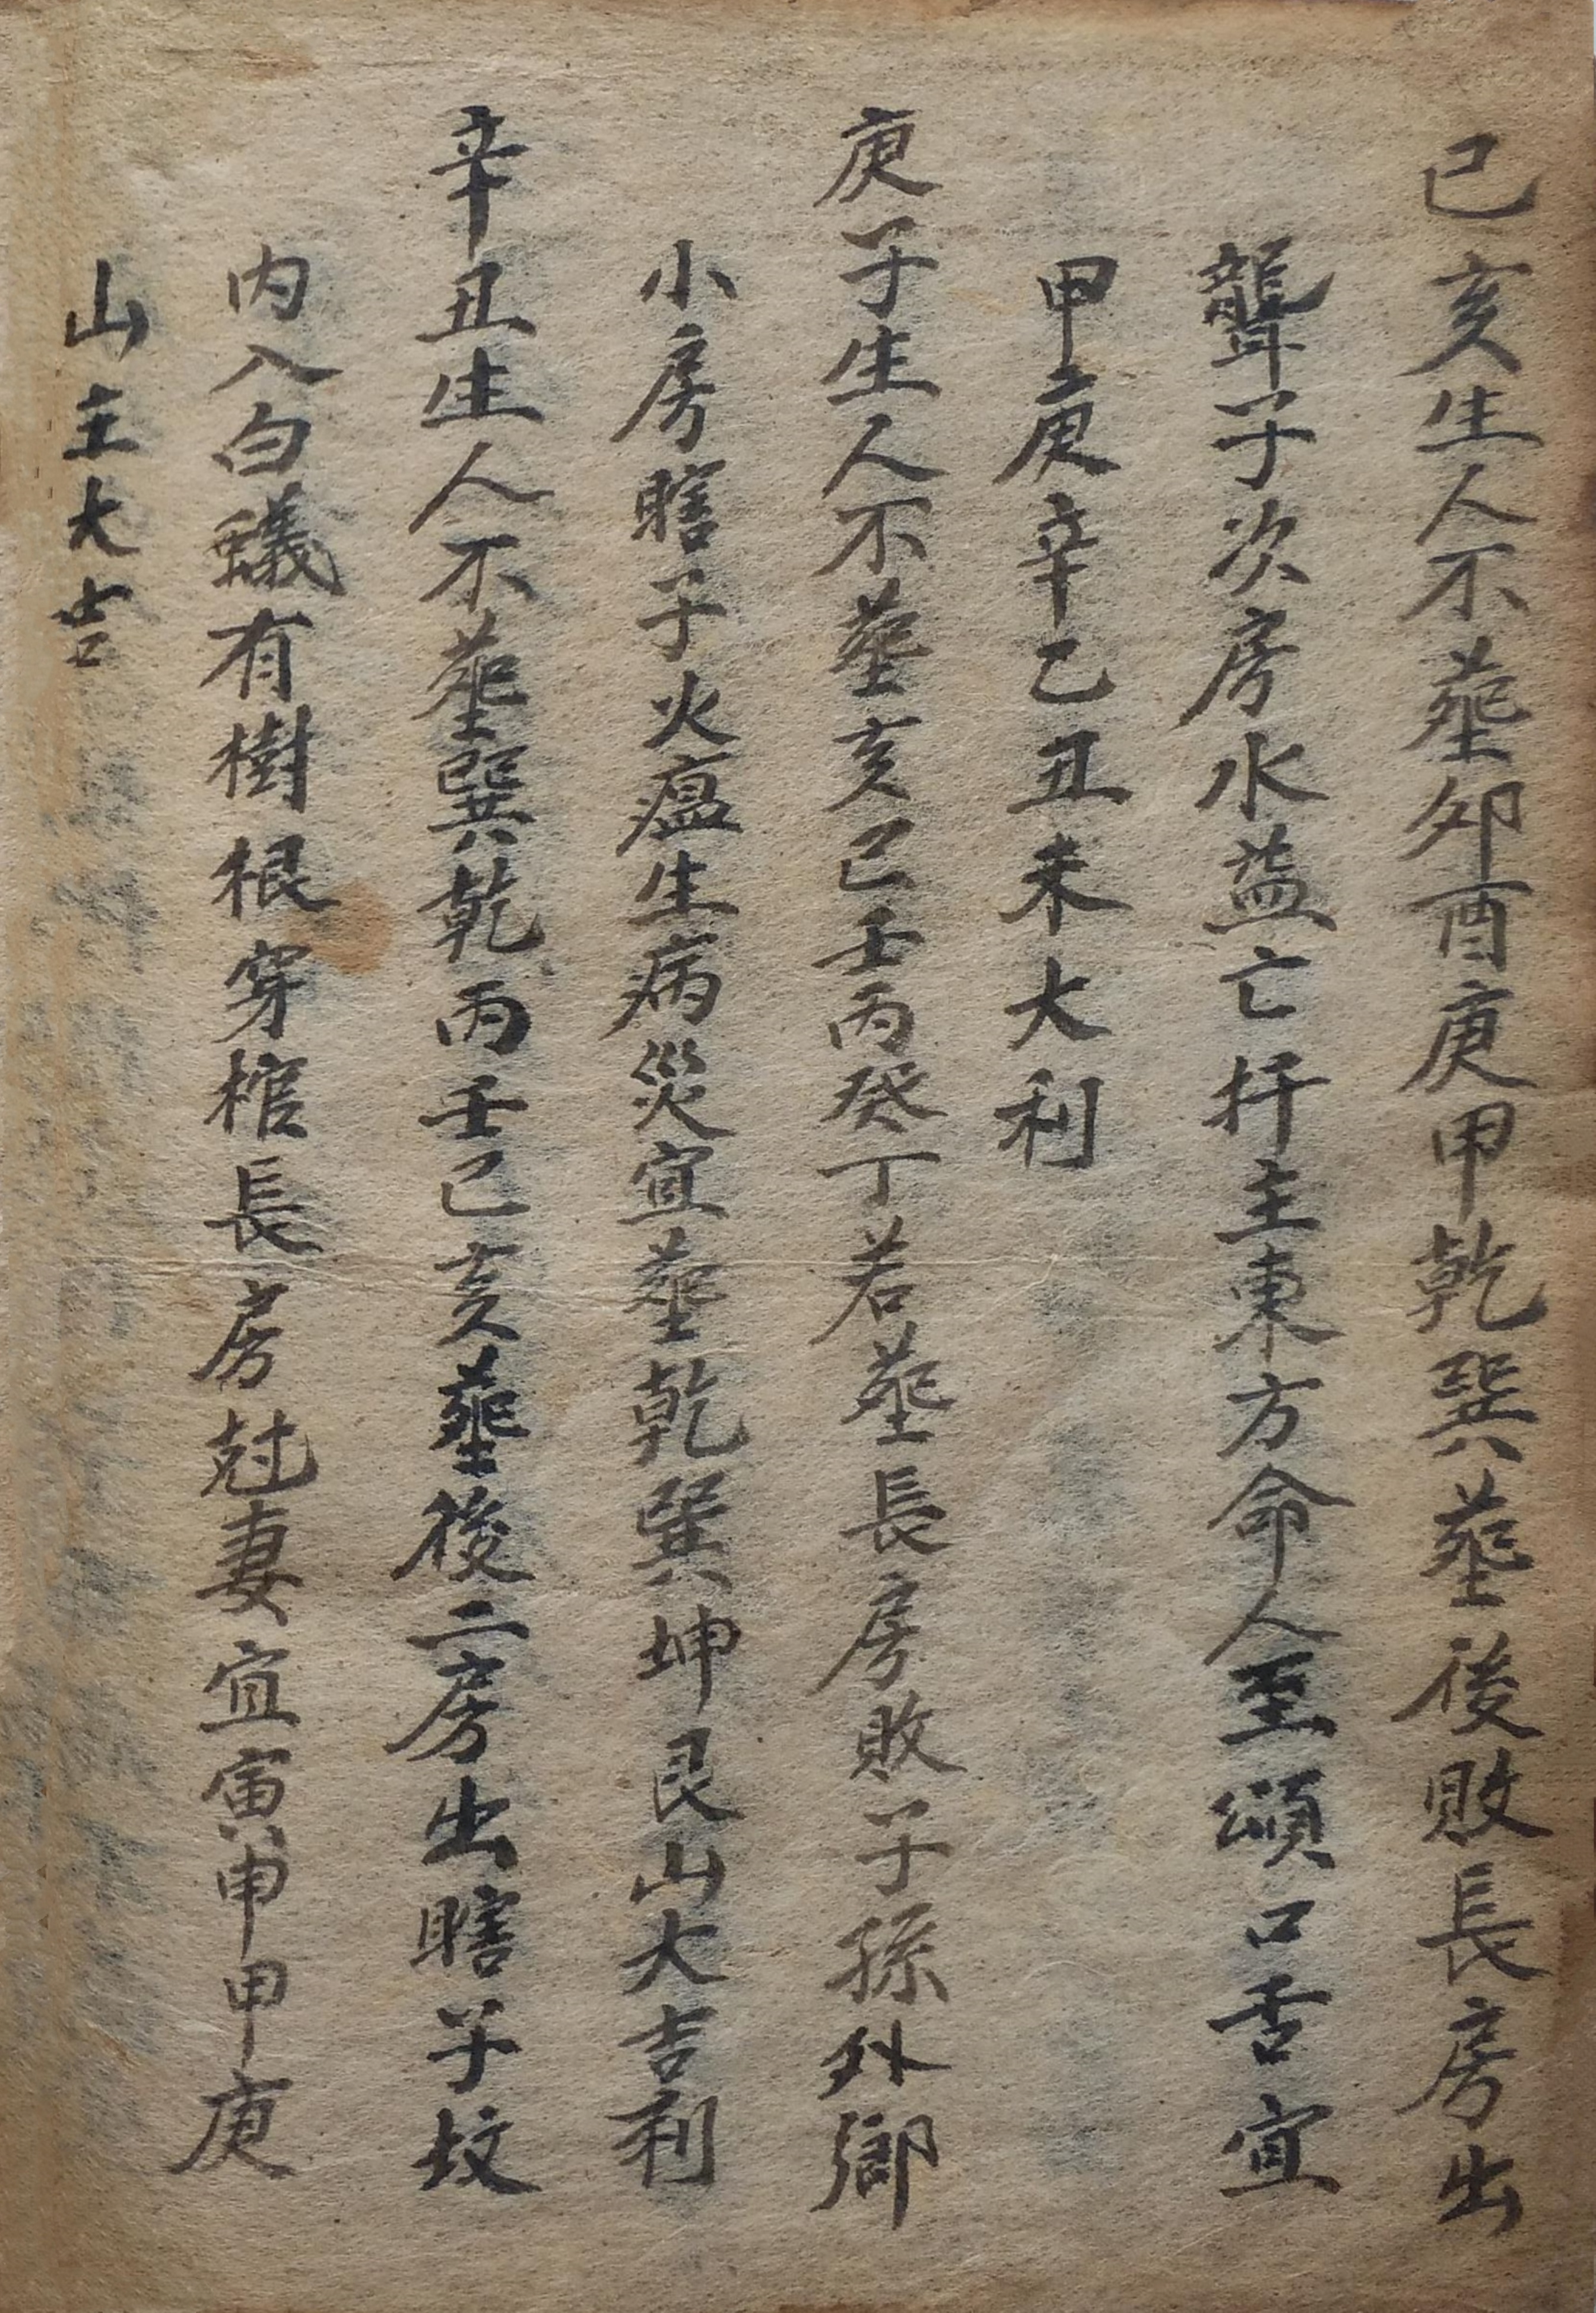 己亥生人不塟夘酉庚甲乾巽塟後敗長房出
聾子次房水益亡扞主東方命人至頌口舌宜
甲庚辛乙丑未大利
庚子生人不塟亥巳壬丙癸丁若塟長房敗子孫外鄉
小房瞎子火瘟生病災宜塟乾巽坤艮山大吉利
辛丑生人不塟巽乾丙壬巳亥塟後二房出瞎子坟
内入白蟻有樹根穿棺長房尅妻宜寅申甲庚
山主大吉